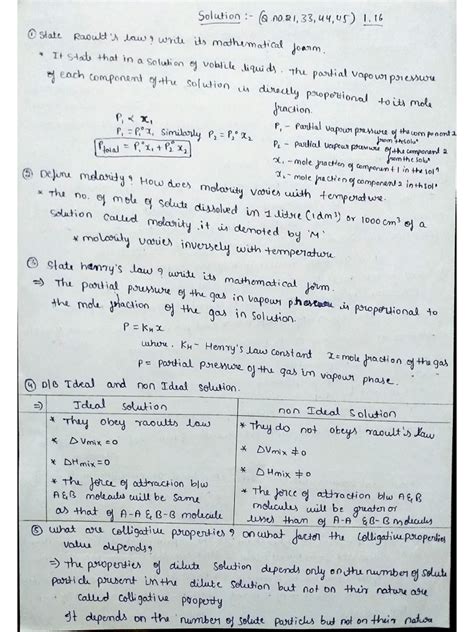 Solution :- (Q no. 21, 33, 44, 45) 1.16
① State Raoult's law? write its mathematical foarm.
* It state that in a solution of volatile liquids. The partial vapour pressure
of each component of the solution is directly propotional to its mole
fraction.
P₁ ∝ x₁
P₁ = P₁°x₁ Similarly P₂ = P₂°x₂
Ptotal = P₁°x₁ + P₂°x₂
P₁ - Partial vapour pressure of the component 1
from the solⁿ
P₂ - partial vapour pressure of the component 2
from the solⁿ
x₁ - mole fraction of component 1 in the solⁿ
x₂ - mole fraction of component 2 in the solⁿ
② Define molarity? How does molarity varies with temperature.
* The no. of mole of solute dissolved in 1 litre (1 dm³) or 1000 cm³ of a
solution called molarity. it is denoted by 'M'
* molarity varies inversely with temperature.
③ State henry's law & write its mathematical form.
⇒ The partial pressure of the gas in vapour is proportional to
the mole fraction of the gas in solution.
P = KH x
where. KH - Henry's law constant x = mole fraction of the gas
p = partial pressure of the gas in vapour phase.
④ D/B Ideal and non Ideal solution.
⇒ Ideal solution
* They obey raoults law
* ΔVmix = 0
* ΔHmix = 0
* The force of attraction b/w
A & B molecules will be same
as that of A-A & B-B molecule
non Ideal Solution
* They do not obeys raoult's law
* ΔVmix ≠ 0
* ΔHmix ≠ 0
* The force of attraction b/w A & B
molecules will be greater or
lesses than of A-A & B-B molecules
⑤ What are colligative properties? on what factor the colligative properties
value depends?
⇒ The properties of dilute solution depends only on the number of solute
particle present in the dilute solution but not on their nature are
called colligative property
It depends on the number of solute particles but not on their nature